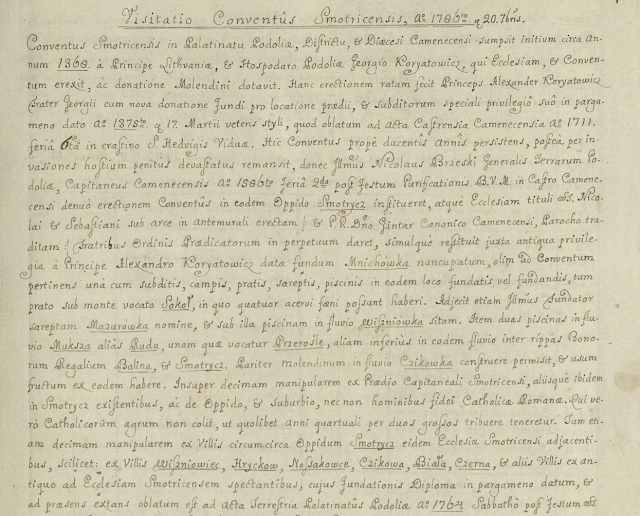 Visitatio Conventûs Smotricensis, Aº 1786to. q 20. 7bris.
Conventus Smotricensis in Palatinatu Podoliæ, Districtu, & Diæcesi Camenecensi sumpsit initium circa An-
num 1360. à Principe Lithvaniæ, & Hospodaro Podoliæ Georgio Koryatowicz, qui Ecclesiam, & Conven-
tum erexit, ac donatione Molendini dotavit. Hanc erectionem ratam fecit Princeps Alexander Koryatowicz
frater Georgii cum nova donatione fundi pro locatione prædii, & subditorum speciali privilegiô suô in parga-
meno dato Aº 1375to. q 17. Martii veteris styli, quod oblatum ad Acta Castrensia Camenecensia Aº 1711.
feriâ 6tâ in crastino S. Hedvigis Viduæ. Hic Conventus propè ducentis Annis persistens, posteà, per in-
vasiones hostium penitùs devastatus remansit, donec Illmus Nicolaus Brzeski Generalis Terrarum Po-
doliæ, Capitaneus Camenecensis Aº feriâ 2da post festum Purificationis B.V.M. in Castro Camene-
censi denuò erectionem Conventûs in eodem Oppido Smotrycz institueret, atque Ecclesiam tituli SS. Nico-
lai & Sebastiani sub arce in antemurali erectam /: & P.R. Dño Gintar Canonico Camenecensi, Parocho tra-
ditam :/ fratribus Ordinis Prædicatorum in perpetuum daret, simulque restituit juxta antiqua privile-
gia à Principe Alexandro Koryatowicz data fundum Mnichowka nuncupatum, olim ad Conventum
pertinens unà cum subditis, campis, pratis, sareptis, piscinis in eodem loco fundatis vel fundandis, tum
prato sub monte vocato Sokoł, in quo quatuor acervi fæni possunt haberi. Adjecit etiam Illmus Fundator
sareptam Mazurowka nomine, & sub illa piscinam in fluvio Wiszniowka sitam. Item duas piscinas in flu-
vio Muksza aliàs Ruda, unam quæ vocatur Przerosle, aliam inferiùs in eodem fluvio inter rippas Bono-
rum Regalium Balina, & Smotrycz. Pariter molendinum in fluvio Czikowka construere permisit, & usum
fructum ex eodem habere. Insuper decimam manipularem ex Prædio Capitaneali Smotricensi, aliisque ibidem
in Smotrycz existentibus, ac de Oppido, & suburbio, nec non hominibus fidei Catholicæ Romanæ. Qui ve-
rò Catholicoram agrum non colit, ut quolibet anni quartuali per duos grossos tribuere teneretur. Tum eti-
am decimam manipularem ex Villis circumcirca Oppidum Smotrycz eidem Ecclesiæ Smotricensi adjacenti-
bus, scilicet: ex Villis Wiszniowiec, Hryckow, Nossakowce, Czikowa, Biała, Czerna, & aliis Villis ex an-
tiquo ad Ecclesiam Smotricensem spectantibus; cujus fundationis Diploma in pargameno datum, &
ad præsens extans oblatum est ad Acta Terrestria Palatinatûs Podoliæ Aº 1764 Sabbathô post festum SS.